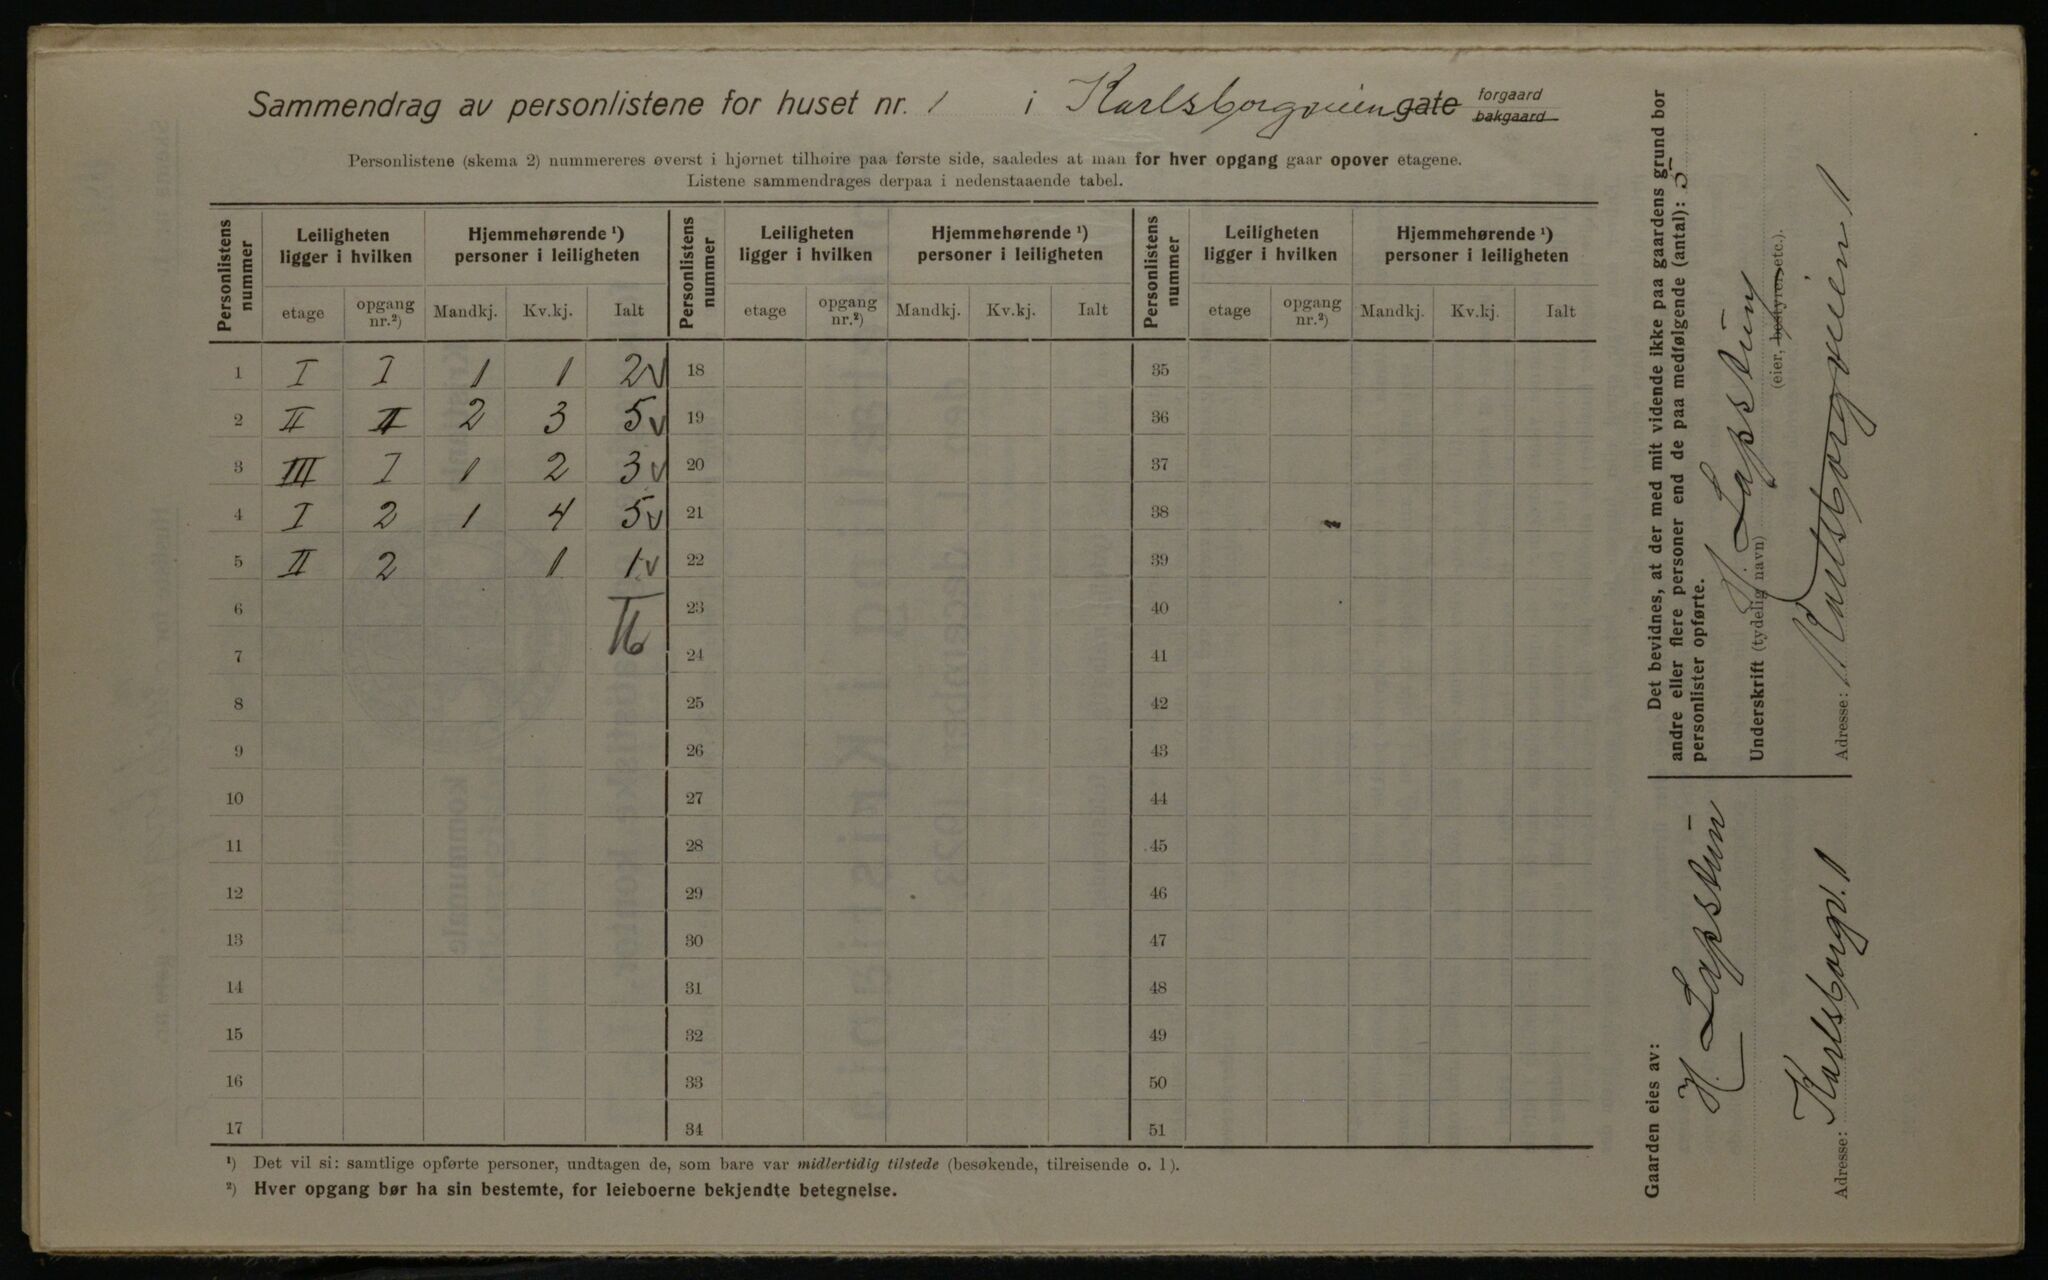 Sammendrag av personlistene for huset nr. 1 i Karlsborgveien gate forgaard bakgaard
Personlistene (skema 2) nummereres øverst i hjørnet tilhøire paa første side, saaledes at man for hver opgang gaar opover etagene.
Listene sammendrages derpaa i nedenstaaende tabel.
Personlistens nummer | Leiligheten ligger i hvilken | Hjemmehørende ¹) personer i leiligheten | Personlistens nummer | Leiligheten ligger i hvilken | Hjemmehørende ¹) personer i leiligheten | Personlistens nummer | Leiligheten ligger i hvilken | Hjemmehørende ¹) personer i leiligheten
etage | opgang nr.²) | Mandkj. | Kv.kj. | Ialt | etage | opgang nr.²) | Mandkj. | Kv.kj. | Ialt | etage | opgang nr.²) | Mandkj. | Kv.kj. | Ialt
1 I I 1 1 2 v 18 35
2 II II 2 3 5 v 19 36
3 III I 1 2 3 v 20 37
4 I 2 1 4 5 v 21 38
5 II 2 1 1 v 22 39
6 23 40
16
7 24 41
8 25 42
9 26 43
10 27 44
11 28 45
12 29 46
13 30 47
14 31 48
15 32 49
16 33 50
17 34 51
¹) Det vil si: samtlige opførte personer, undtagen de, som bare var midlertidig tilstede (besøkende, tilreisende o. l).
²) Hver opgang bør ha sin bestemte, for leieboerne bekjendte betegnelse.
Det bevidnes, at der med mit vidende ikke paa gaardens grund bor
andre eller flere personer end de paa medfølgende (antal): 5
personlister opførte.
H. Lapstun
Underskrift (tydelig navn)
(eier, bestyrer etc.).
Adresse: Karlsborgveien 1
Gaarden eies av:
H. Lapstun
Adresse: Karlsborgv. 1